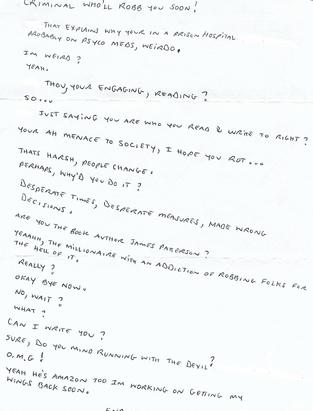 CRIMINAL WHO'LL ROBB YOU SOON!
THAT EXPLAINS WHY YOUR IN A PRISON HOSPITAL
PROBABLY ON PSYCO MEDS, WEIRDO.
IM WEIRD?
YEAH.
THOU, YOUR ENGAGING, READING?
SO...
JUST SAYING YOU ARE WHO YOU READ & WRITE TO RIGHT?
YOUR AH MENACE TO SOCIETY, I HOPE YOU ROT...
THATS HARSH, PEOPLE CHANGE.
PERHAPS, WHY'D YOU DO IT?
DESPERATE TIMES, DESPERATE MEASURES, MADE WRONG
DECISIONS.
ARE YOU THE BOOK AUTHOR JAMES PATERSON?
YEAHH, THE MILLIONAIRE WITH AN ADDICTION OF ROBBING FOLKS FOR
THE HELL OF IT.
REALLY?
OKAY BYE NOW.
NO, WAIT?
WHAT?
CAN I WRITE YOU?
SURE, DO YOU MIND RUNNING WITH THE DEVIL?
O.M.G!
YEAH HE'S AMAZON TOO IM WORKING ON GETTING MY
WINGS BACK SOON.